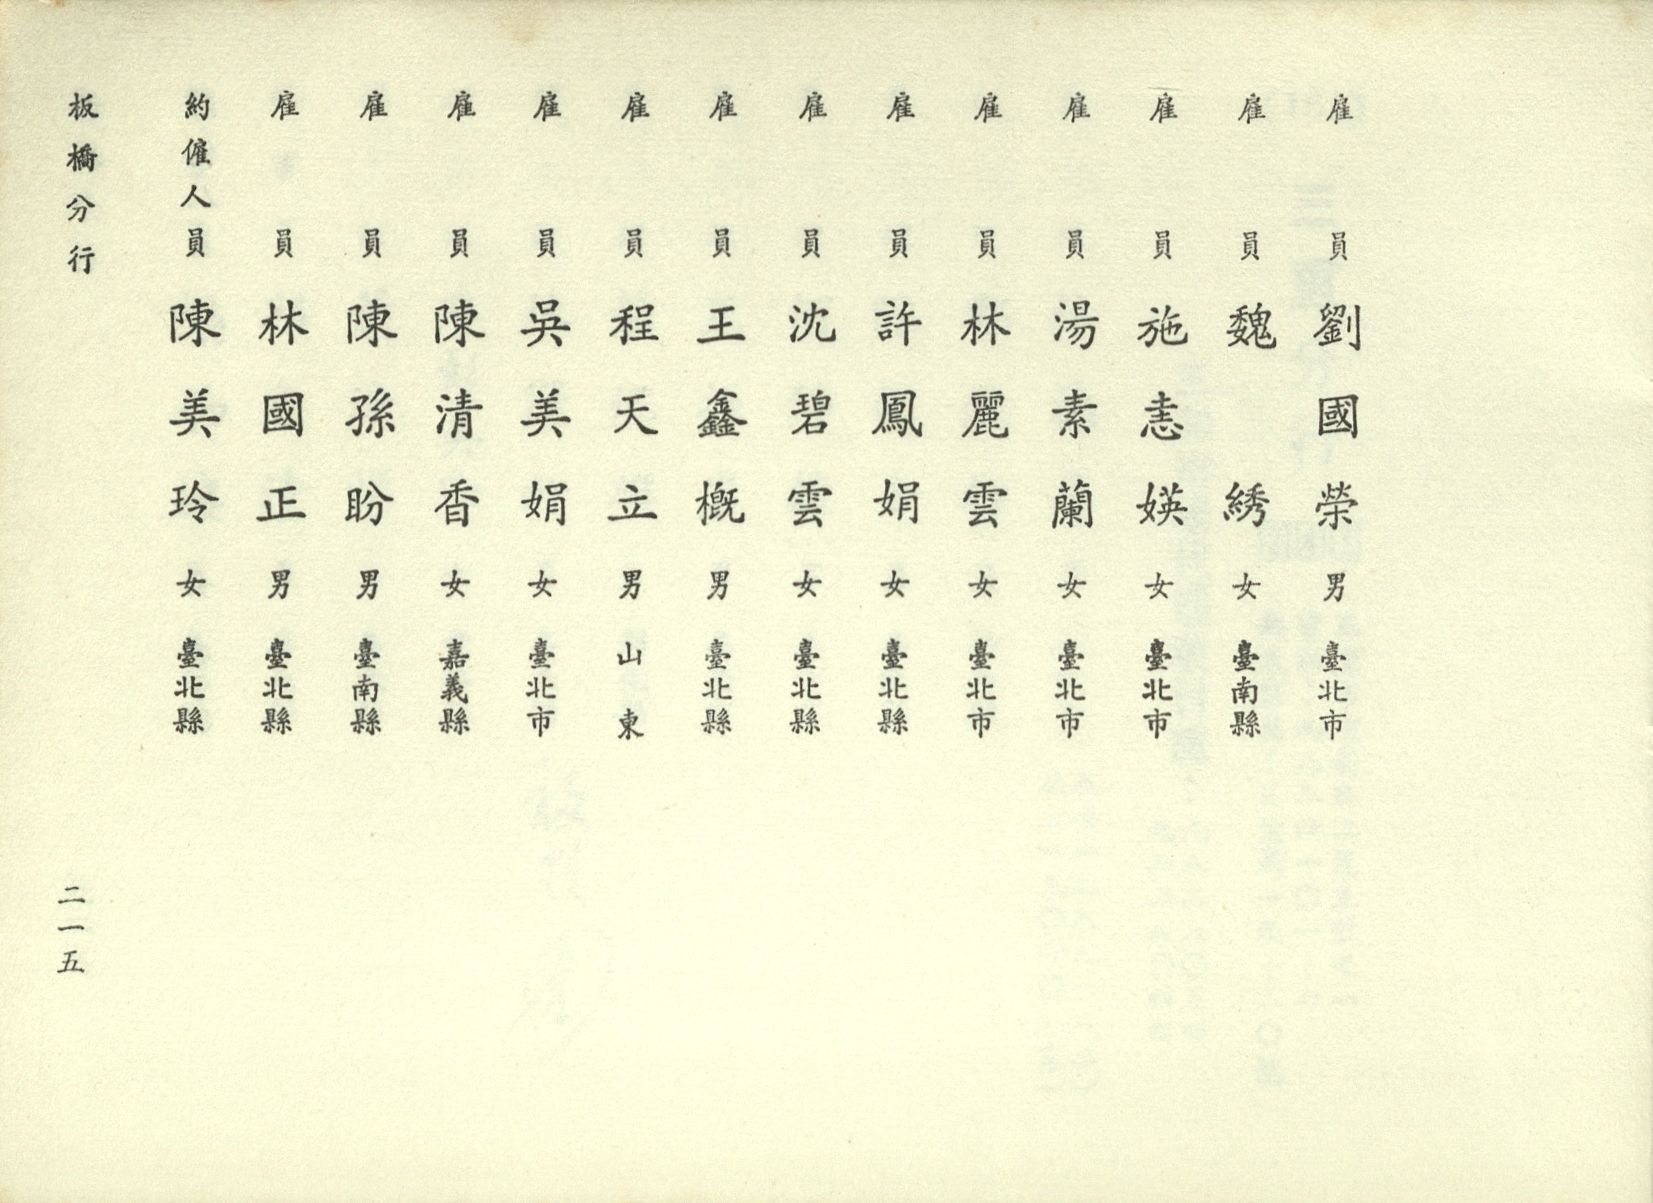 雇員 劉國榮 男 臺北市
雇員 魏綉 女 臺南縣
雇員 施恚媖 女 臺北市
雇員 湯素蘭 女 臺北市
雇員 林麗雲 女 臺北市
雇員 許鳳娟 女 臺北縣
雇員 沈碧雲 女 臺北縣
雇員 王鑫概 男 臺北縣
雇員 程天立 男 山東
雇員 吳美娟 女 臺北市
雇員 陳清香 女 嘉義縣
雇員 陳孫盼 男 臺南縣
雇員 林國正 男 臺北縣
約僱人員 陳美玲 女 臺北縣
板橋分行 二一五